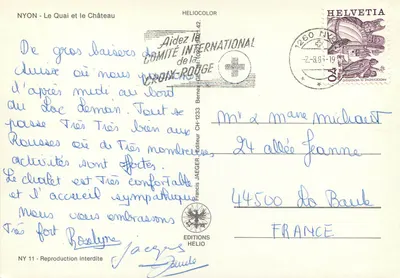 NYON - Le Quai et le Château
HELIOCOLOR
Aidez le
COMITÉ INTERNATIONAL
de la
CROIX-ROUGE
1260 NYON
HELVETIA
De gros baisers de
Suisse où nous
l'après midi au bord
du Lac Leman. Tout se
passe Très Très bien aux
Rousses où de Très nombreuses
activités sont offertes.
Le chalet est Très confortable
et l'accueil sympathique
Nous vous embrassons
Très fort Roselyne
Jacques
Francis JAEGER, Editeur CH-1233 Bernex
EDITIONS
HELIO
Mr & Mme Michault
24 allée Jeanne
44500 La Baule
FRANCE
NY 11 - Reproduction interdite